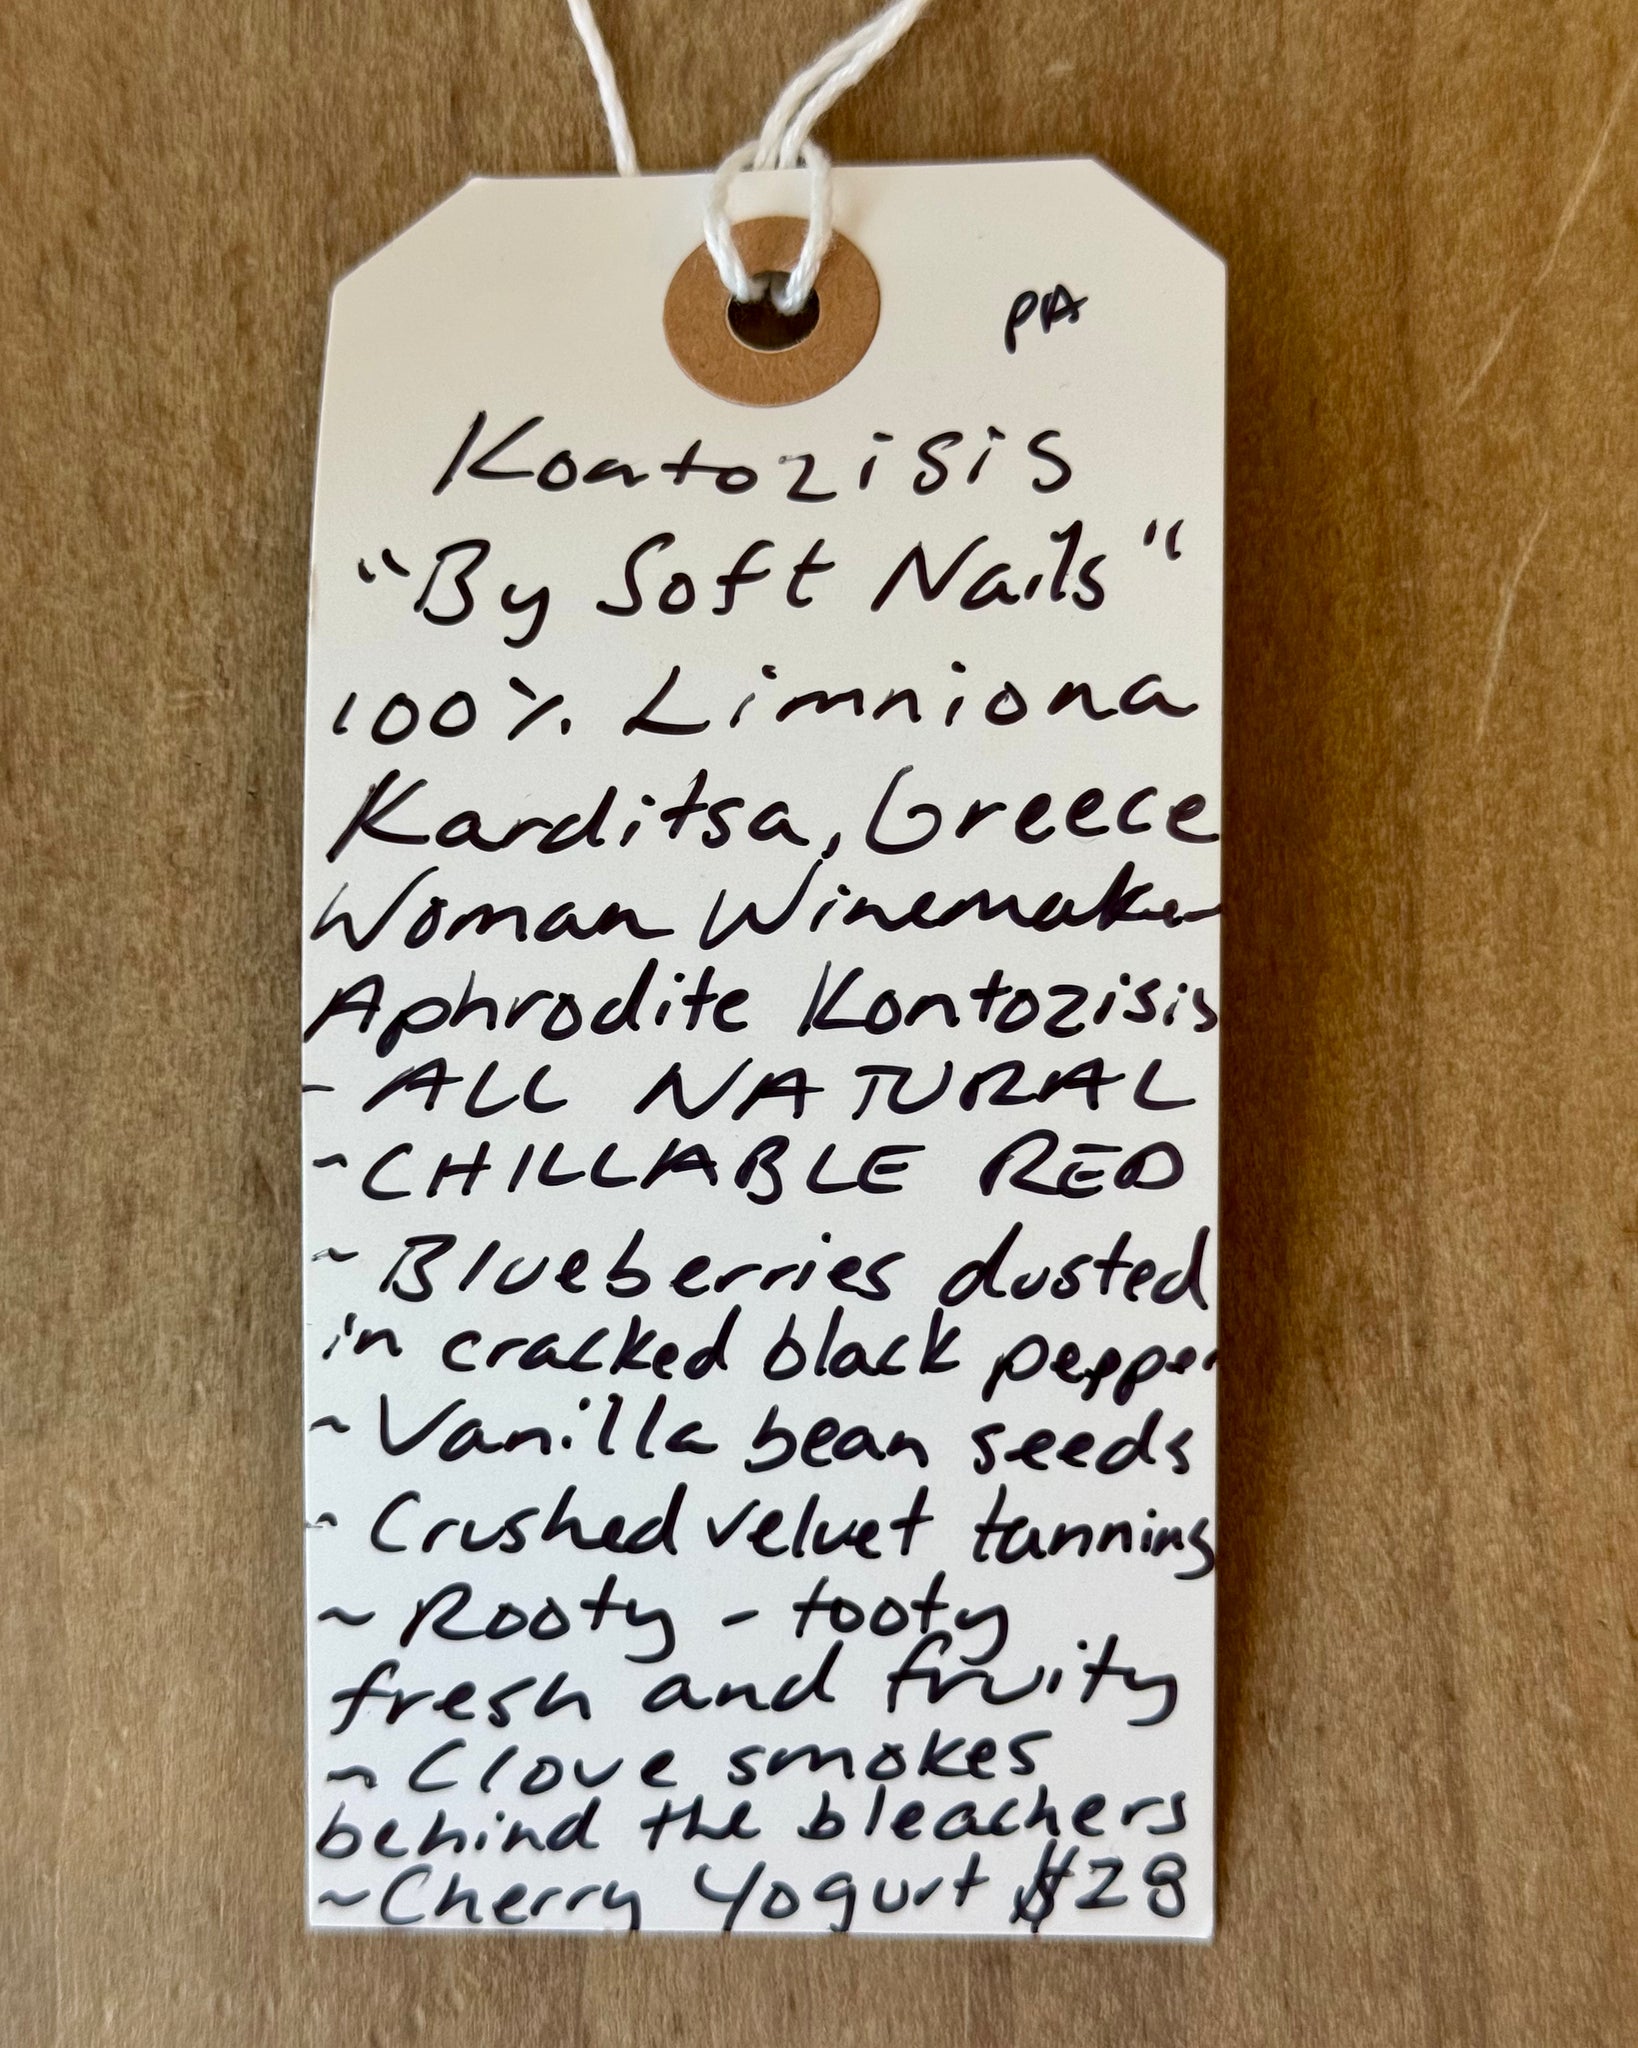 PA
Kontozisis
"By Soft Nails"
100% Limniona
Karditsa, Greece
Woman Winemaker
Aphrodite Kontozisis
- ALL NATURAL
~ CHILLABLE RED
~ Blueberries dusted
in cracked black pepper
~ Vanilla bean seeds
~ Crushed velvet tanning
~ Rooty - tooty
fresh and fruity
~ Clove smokes
behind the bleachers
~ Cherry Yogurt $28